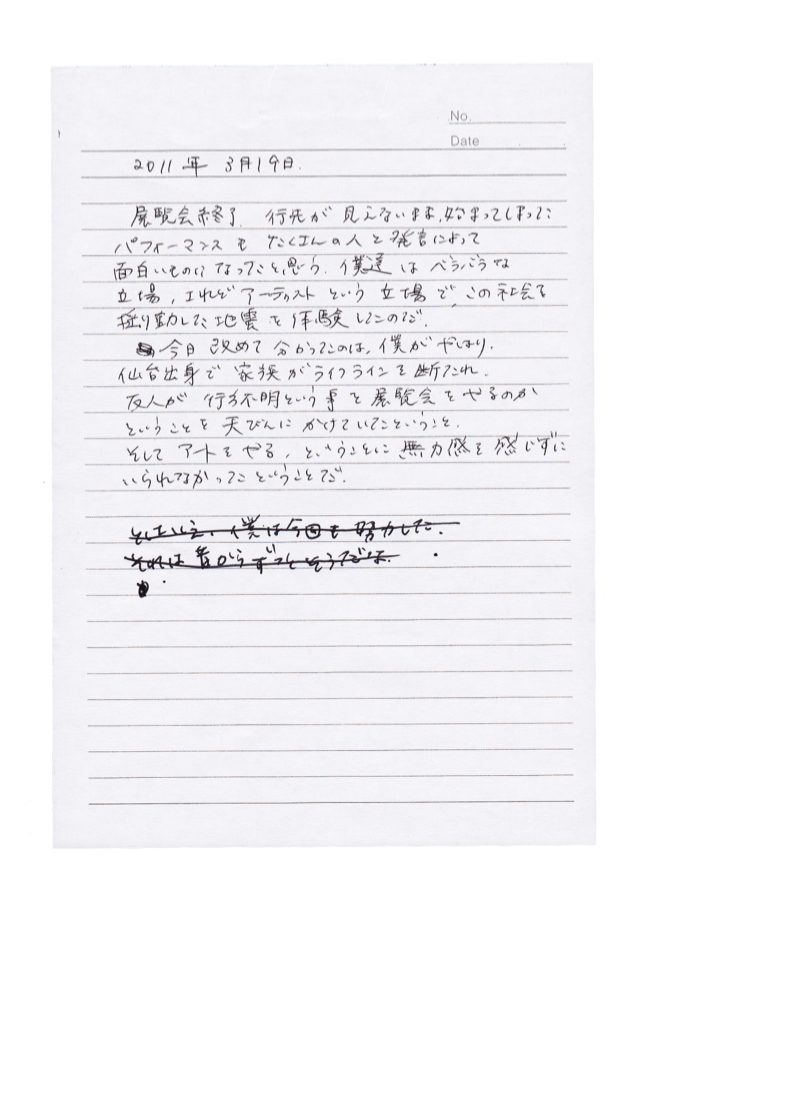 No.
Date
2011年 3月19日.
展覧会終了. 行先が 見えないまま,始まってしまった
パフォーマンスも たくさんの人と発言によって
面白いものになったこと思う. 僕達は バラバラな
立場, それぞアーティスト という 立場で, この社会を
揺り動した地震を体験したのだ.
今日 改めて 分かったのは, 僕が やはり.
仙台出身で 家族がライフラインを断たれ.
友人が 行方不明という事と展覧会をやるのか
ということを 天びんに かけていたということ.
そして アートをやる, ということに 無力感を 感じずに
いられなかった ということだ.
そしていえ, 僕は今回も 努力した.
それは昔からずっとそうだよ.